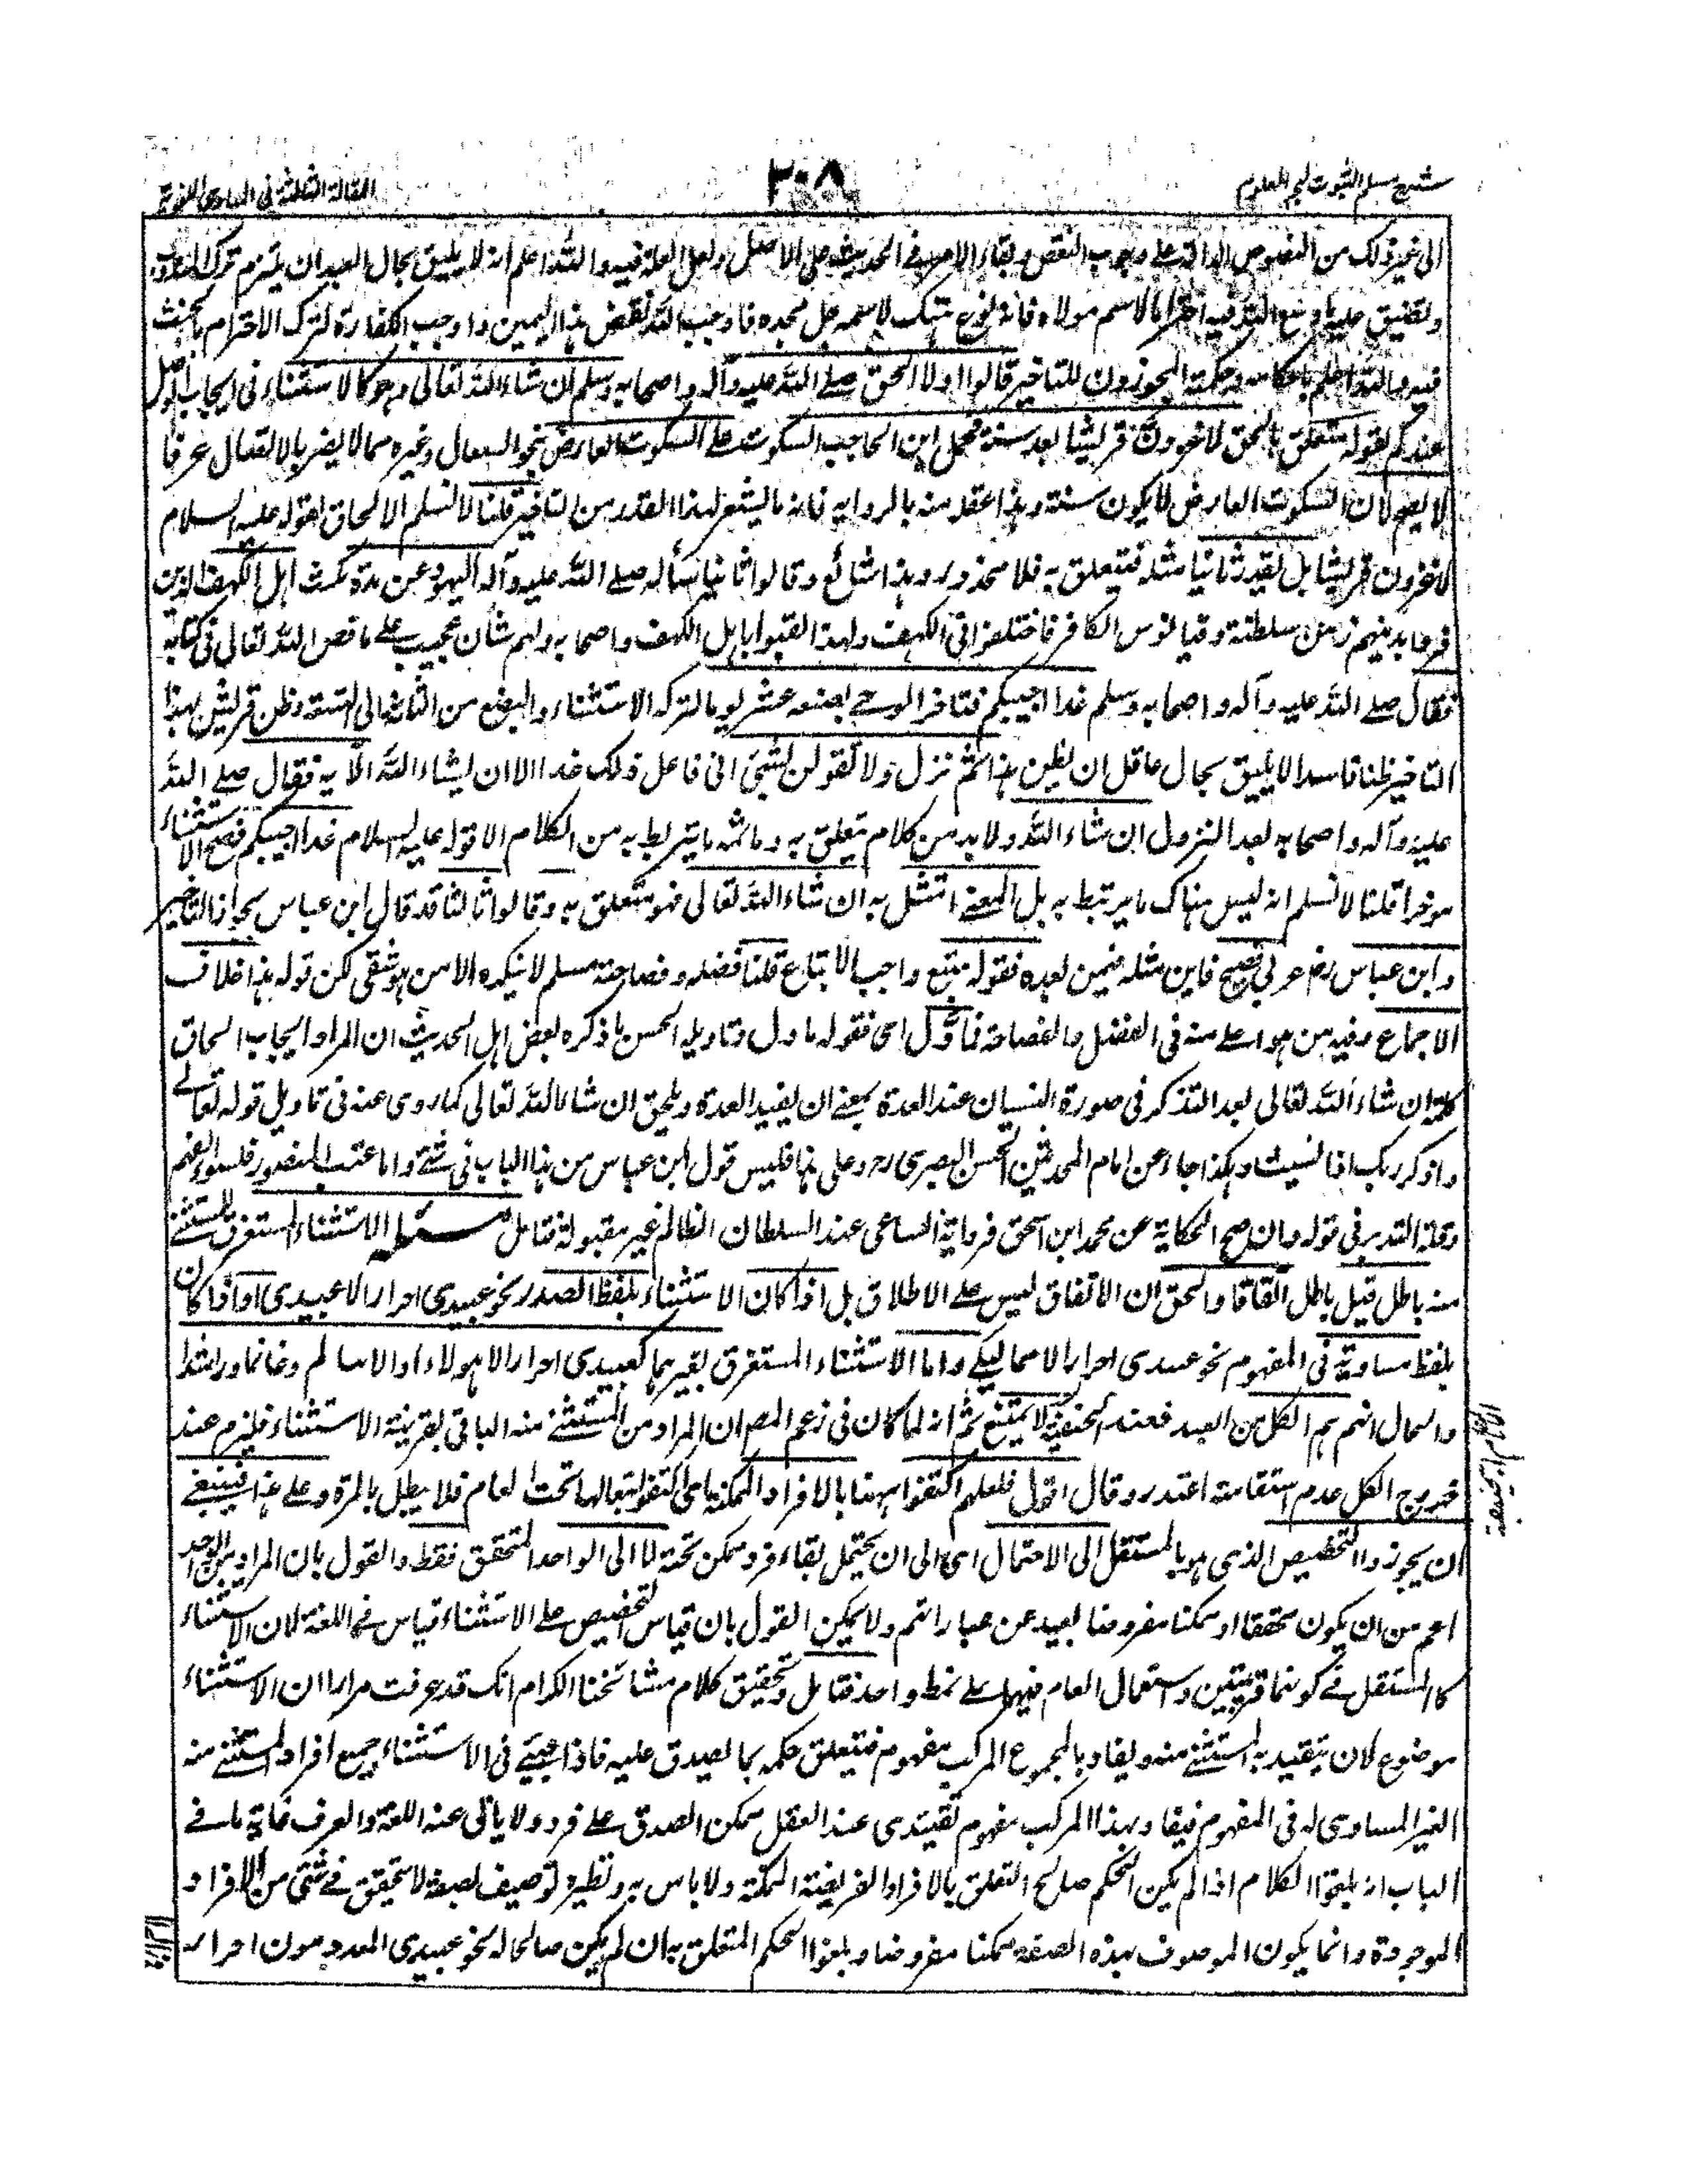 شرح مسلم الثبوت لبحر العلوم
٣٠٨
المقالة الثالثة فى المبادى اللغوية
الى غير ذلك من النصوص الدالة على وجوب النقض وبقاء الامر فى الحديث على الاصل ولعل العلة فيه والله اعلم انه لا يليق بحال العبد ان يلتزم ترك
وتضيق عليه اوسع الله فيه احترا ما لاسم مولاه فانه نوع هتك لاسمه جل مجده فاوجب الله نقض هذا اليمين واوجب الكفارة لترك الاحترام بالحنث
فيه والله اعلم باحكامه وحكمته المجوزون للتاخير قالوا اولا الحق صلى الله عليه وآله واصحابه وسلم ان شاء الله تعالى وهو كالاستثناء فى ايجاب الوصل
عندكم لقوله متعلق بالحق لاغزون قريشا بعد سنة فحمل ابن الحاجب السكوت على السكوت العارض بنحو السعال وغيره مما لا يضر بالاتصال عرفا
لا يصح لان السكوت العارض لا يكون سنة وهذا غفلة منه بالرواية فانه ما ليشعر لهذا القدر من التاخير قلنا لا نسلم الالحاق لقوله عليه السلام
لاغزون قريشا بل يقدر ثانيا مثله فيتعلق به فلا محذور وهذا شائع وقالوا ثانيا سأله صلى الله عليه وآله اليهود عن مدة مكث اهل الكهف الذين
فروا بدينهم زمن سلطنة دقيانوس الكافر فاختلفوا فى الكهف ولهذا لقبوا باهل الكهف واصحابه ولهم شأن عجيب على ما قص الله تعالى فى كتابه
فقال صلى الله عليه وآله واصحابه وسلم غدا اجيبكم فتاخر الوحى بضعة عشر يوما لتركه الاستثناء والبضع من الثلثة الى التسعة وظن قريش بهذا
التاخير ظنا فاسدا لا يليق بحال عاقل ان يظن هذا ثم نزل ولا تقولن لشىء انى فاعل ذلك غدا الا ان يشاء الله الآية فقال صلى الله
عليه وآله واصحابه بعد النزول ان شاء الله ولا بد من كلام يتعلق به وما ثمه ما يرتبط به من الكلام الا قوله عليه السلام غدا اجيبكم فصح الاستثناء
موخرا قلنا لا نسلم انه ليس هناك ما يرتبط به بل المعنى امتثل به ان شاء الله تعالى فهو متعلق به وقالوا ثالثا قد قال ابن عباس بجواز التاخير
وابن عباس رض عربى فصيح فاين مثله فيمن بعده فقوله متبع واجب الاتباع قلنا فضله وفصاحته مسلم لا ينكره الا من هو شقى لكن قوله هذا خلاف
الاجماع وفيه من هو اعلى منه فى الفضل والفصاحة فماؤل اى فقوله ماول وتاويله الحسن ما ذكره بعض اهل الحديث ان المراد ايجاب الحاق
كلمة ان شاء الله تعالى بعد التذكر فى صورة النسيان عند العدة بمعنى ان يفيد العدة ويلحق ان شاء الله تعالى كما روى عنه فى تاويل قوله تعالى
واذكر ربك اذا نسيت وهكذا جاء عن امام المحدثين الحسن البصرى ره وعلى هذا فليس قول ابن عباس من هذا الباب فى شئ واما عتب المنصور فلسوء الفهم
وقلة التدبر فى قوله وان صح الحكاية عن محمد ابن اسحق فرواية الساعى عند السلطان الظالم غير مقبولة فتامل مسئله الاستثناء المستغرق للمستثنى
منه باطل قيل باطل اتفاقا والحق ان الاتفاق ليس على الاطلاق بل اذا كان الاستثناء بلفظ الصدر نحو عبيدى احرار الا عبيدى او اذا كان
بلفظ مساويه فى المفهوم نحو عبيدى احرار الا مماليكى واما الاستثناء المستغرق بغيرهما كعبيدى احرار الا هولاء او الا سالم وغانما وراشدا
والحال انهم هم الكل من العبيد فعند الحنفية لا يمتنع ثم انه لما كان فى زعم المص ان المراد من المستثنى منه الباقى بقرينة الاستثناء فيلزم عند
خروج الكل عدم استقامته اعتذر وقال اقول فلعلهم اكتفوا ههنا بالافراد الممكنة اى اكتفوا تحت العام فلا يبطل بالمرة وعلى هذا فينبغى
ان يجوزوا التخصيص الذى هو بالمستقل الى الاحتمال اى الى ان يحتمل بقاء فرد ممكن تحته لا الى الواحد المتحقق فقط والقول بان المراد من الواحد
اعم من ان يكون محققا او ممكنا مفروضا بعيد عن عباراتهم ولا يمكن القول بان قياس التخصيص على الاستثناء قياس فى اللغة لان الاستثناء
كالمستقل فى كونهما قرينتين واستعمال العام فيهما على نمط واحد فتامل وتحقيق كلام مشائخنا الكرام انك قد عرفت مرارا ان الاستثناء
موضوع لان يتقيد به المستثنى منه ويفاد بالمجموع المركب مفهوم فيتعلق حكمه بما يصدق عليه فاذا جيئ فى الاستثناء جميع افراد المستثنى منه
الغير المساوى له فى المفهوم فيفاد بهذا المركب مفهوم تقييدى عند العقل ممكن الصدق على فرد ولا يابى عنه اللغة والعرف غاية ما فى
الباب انه يلغوا الكلام اذا لم يكن الحكم صالح التعلق بالافراد الفرضية الممكنة ولا باس به ونظيره توصيف بصفة لا تتحقق فى شئ من الافراد
الموجودة وانما يكون الموصوف بهذه الصفة ممكنا مفروضا ويلغوا الحكم المتعلق به ان لم يكن صالحا له نحو عبيدى المعدومون احرار